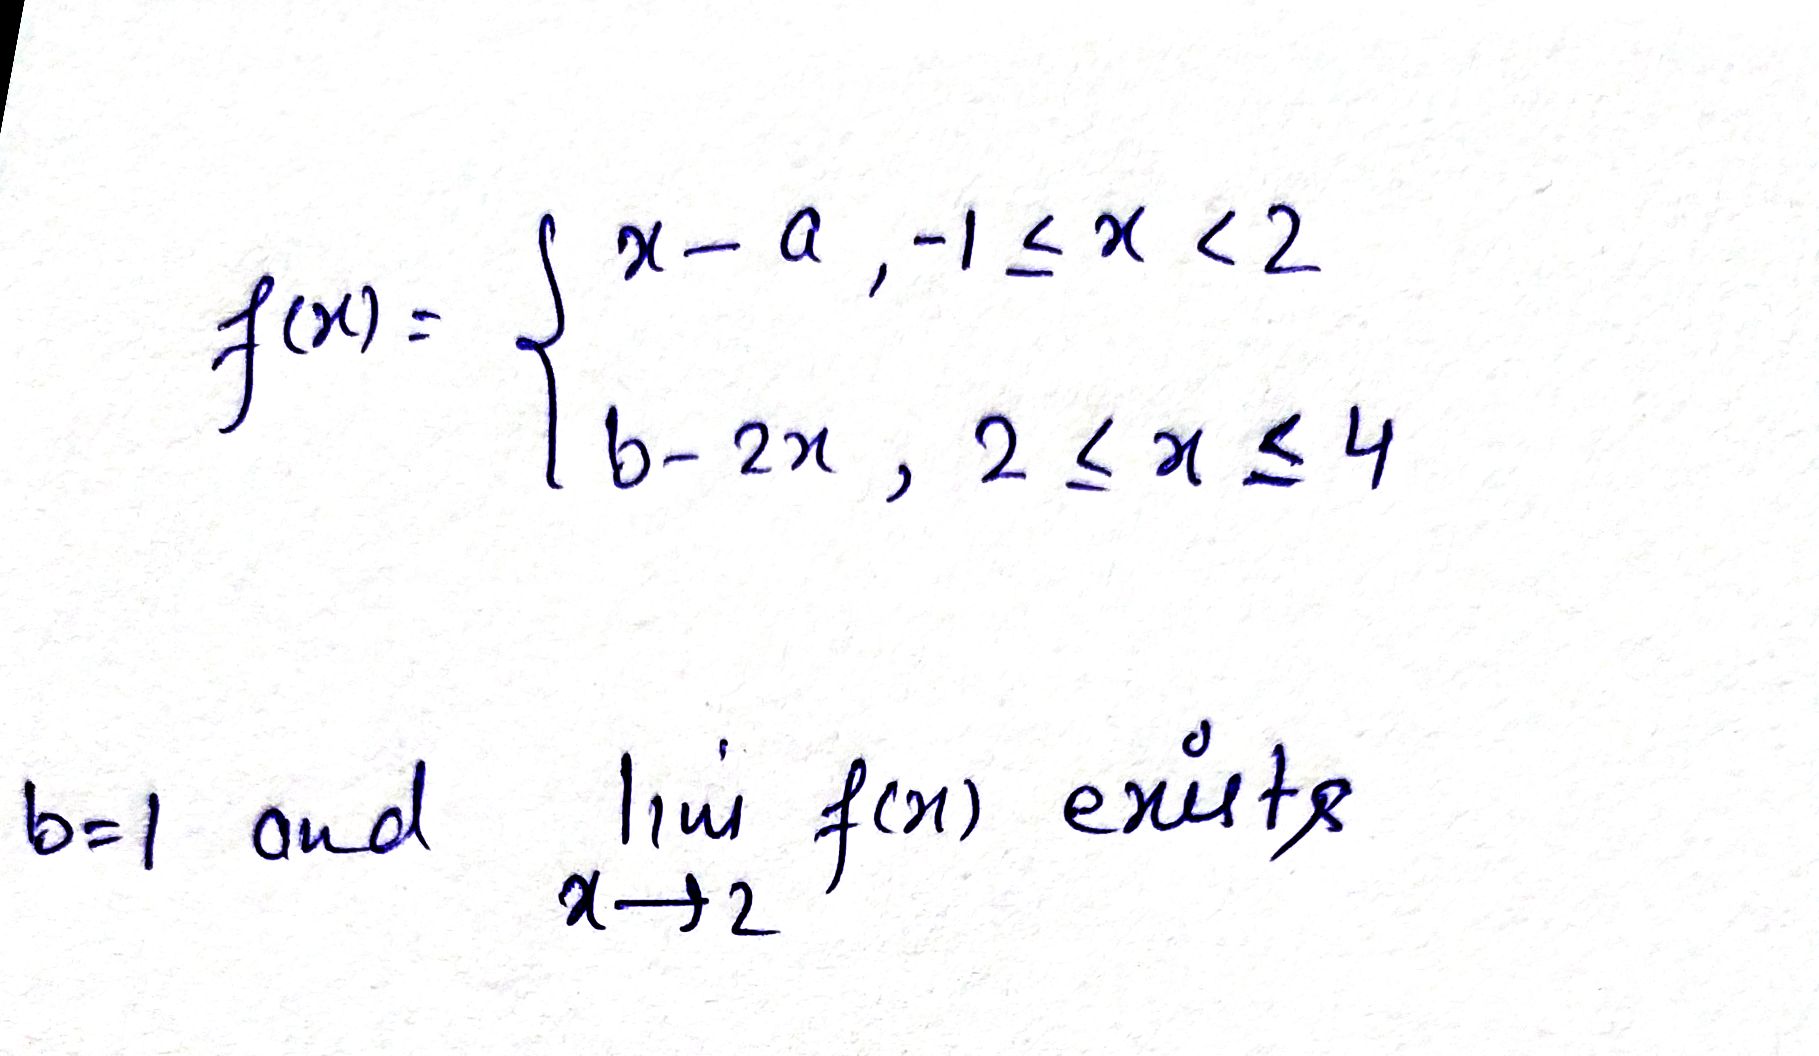 f(x) = { x - a , -1 ≤ x < 2
b - 2x , 2 ≤ x ≤ 4
b=1 and lim f(x) exists
x→2